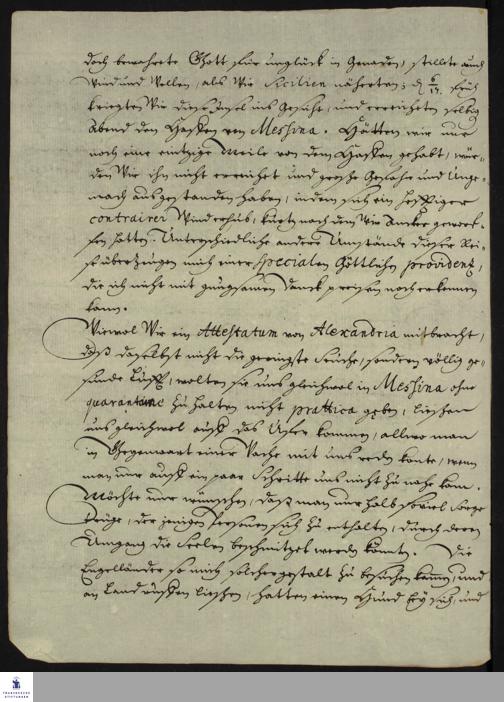 doch bewahrete Gott für unglück in Genaden, stillete auch
Wind und Wellen, als wir Sicilien näherten; d. 6/17. früh
kriegten wir diese Insel ins Gesicht, und erreichten selbig
Abend den Hafen von Messina. Hätten wir nur
noch eine eintzige Meile von dem Hafen gehabt, wür-
den wir ihn nicht erreichet und große Gefahr und Unge-
mach ausgestanden haben, indem sich ein hefftiger
contrairer Wind erhub, kurtz nach dem wir Ancker geworf-
fen hatten. Unterschiedliche andere Umstände dieser Rei-
se überzeugen mich einer specialen Göttlichen providentz,
die ich nicht mit gnugsamen Danck preisen noch erkennen
kann.
Wiewol Wir ein Attestatum von Alexandria mitbracht,
daß daselbst nicht die geringste Seuche, sondern völlig ge-
sunde Lufft, wolten sie uns gleichwol in Messina ohne
quarantaine zu halten nicht prattica geben, ließen
uns gleichwol auff das Ufer kommen, allwo man
in Gegenwart einer Wache mit uns reden konte, wenn
man nur auff ein paar Schritte uns nicht zu nahe kam.
Möchte nur wünschen, daß man nur halb soviel Sorge
trüge, derjenigen Personen sich zu enthalten, durch deren
Umgang die Seelen beschmitzet werden könten. Die
Engelländer so mich solchergestalt zu besuchen kamen, und
an Land ließen, hatten einen Hund bey sich, und
FRANCKESCHE
STIFTUNGEN